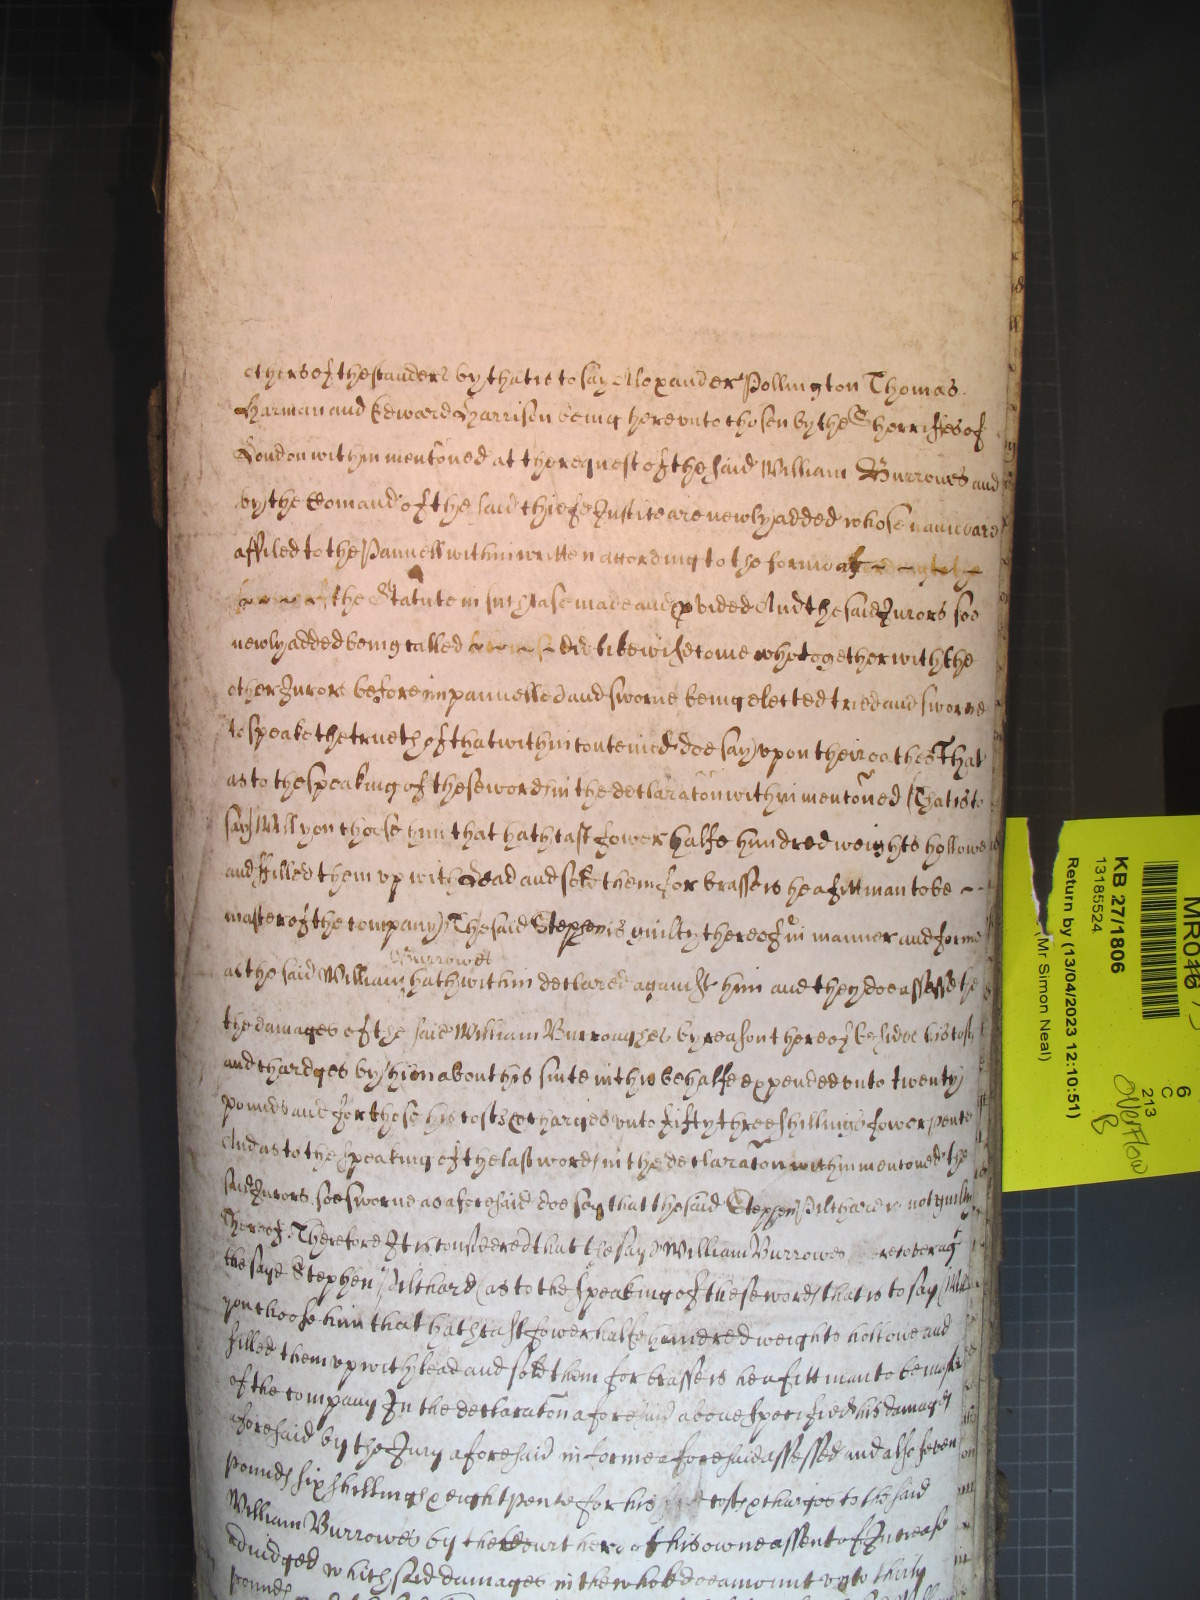 others of the standers by that is to say Alexander Pollington Thomas
Harman and Edward Harrison being herevnto chosen by the Sherriffes of
London within mentoned at the request of the said William Burrowes and
by the Comand of the said chiefe Justice are newly added whose names are
affiled to the Pannell within written according to the forme of
the Statute in such case made and pvided And the said Jurors soe
newly added being called did likewise come who together with the
other Jurors before impannelled and sworne being elected tried and sworne
to speake the trueth of that within conteined doe say vpon their oathes That
as to the speaking of these words in the declaraton within mentoned (That is to
say) Will you choose him that hath cast fower halfe hundred weights hollowe
and filled them vp with Lead and sold them for brasse is he a fitt man to be
master of the company) The said Stephen is guilty thereof in manner and forme
Burrowes
as the said William hath within declared against him and they doe assesse the
the damages of the said William Burroughes by reason thereof besides his costs
and chardges by him about his suite in this behalfe expended vnto twenty
pounds and for those his costs & charges vnto fifty three shillings fower pence
And as to the speaking of the last words in the declaraton within mentoned the
said Jurors soe sworne as aforesaid doe say that the said Stephen Pilchard is not guilty
thereof. Therefore It is considered that the sayd William Burrowes recover agt
the sayd Stephen Pilchard (as to the speaking of these words that is to say (Will
you choose him that hath cast fower halfe hundred weights hollowe and
filled them vp with lead and sold them for brasse is he a fitt man to be master
of the company In the declaraton aforesaid above specified his damages
aforesaid by the Jury aforesaid in forme aforesaid assessed and also seven
pounds six shillings & eight pence for his costs & charges to the said
William Burrowes by the Court here of his owne assent of Increase
adiudged which said damages in the whole doe amount vnto thirty
pounds
KB 27/1806
13185524
Return by (13/04/2023 12:10:51)
(Mr Simon Neal)
6
C
213
Overflow
B